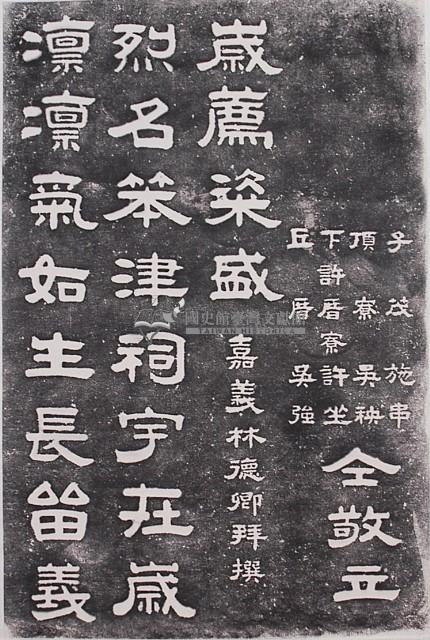 凛凛氣如生長留義
烈名笨津祠宇在歲
歲薦粢盛
嘉義林德卿拜撰
丘厝 吳強
下許厝寮許坐
頂寮 吳秧
子茂 施串
仝敬立
國史館臺灣文獻館
TAIWAN HISTORICA